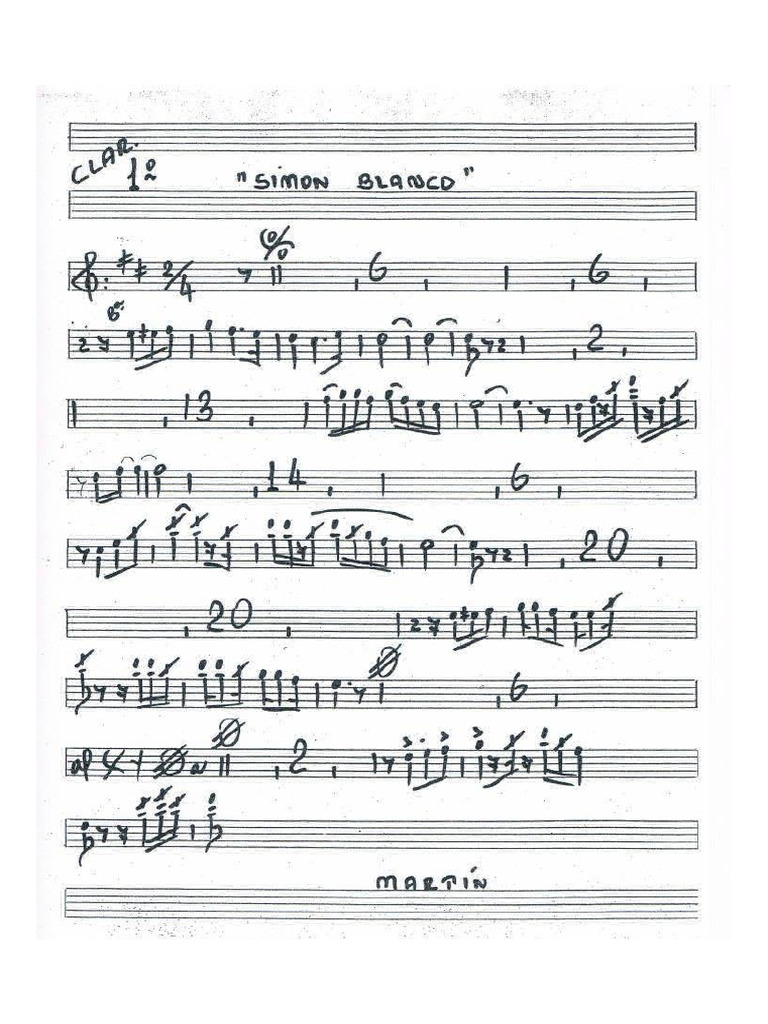 CLAR.
1º "SIMON BLANCO"
2/4 6 6
8ª
2
13
14 6
20
20
6
al y a 2
MARTÍN